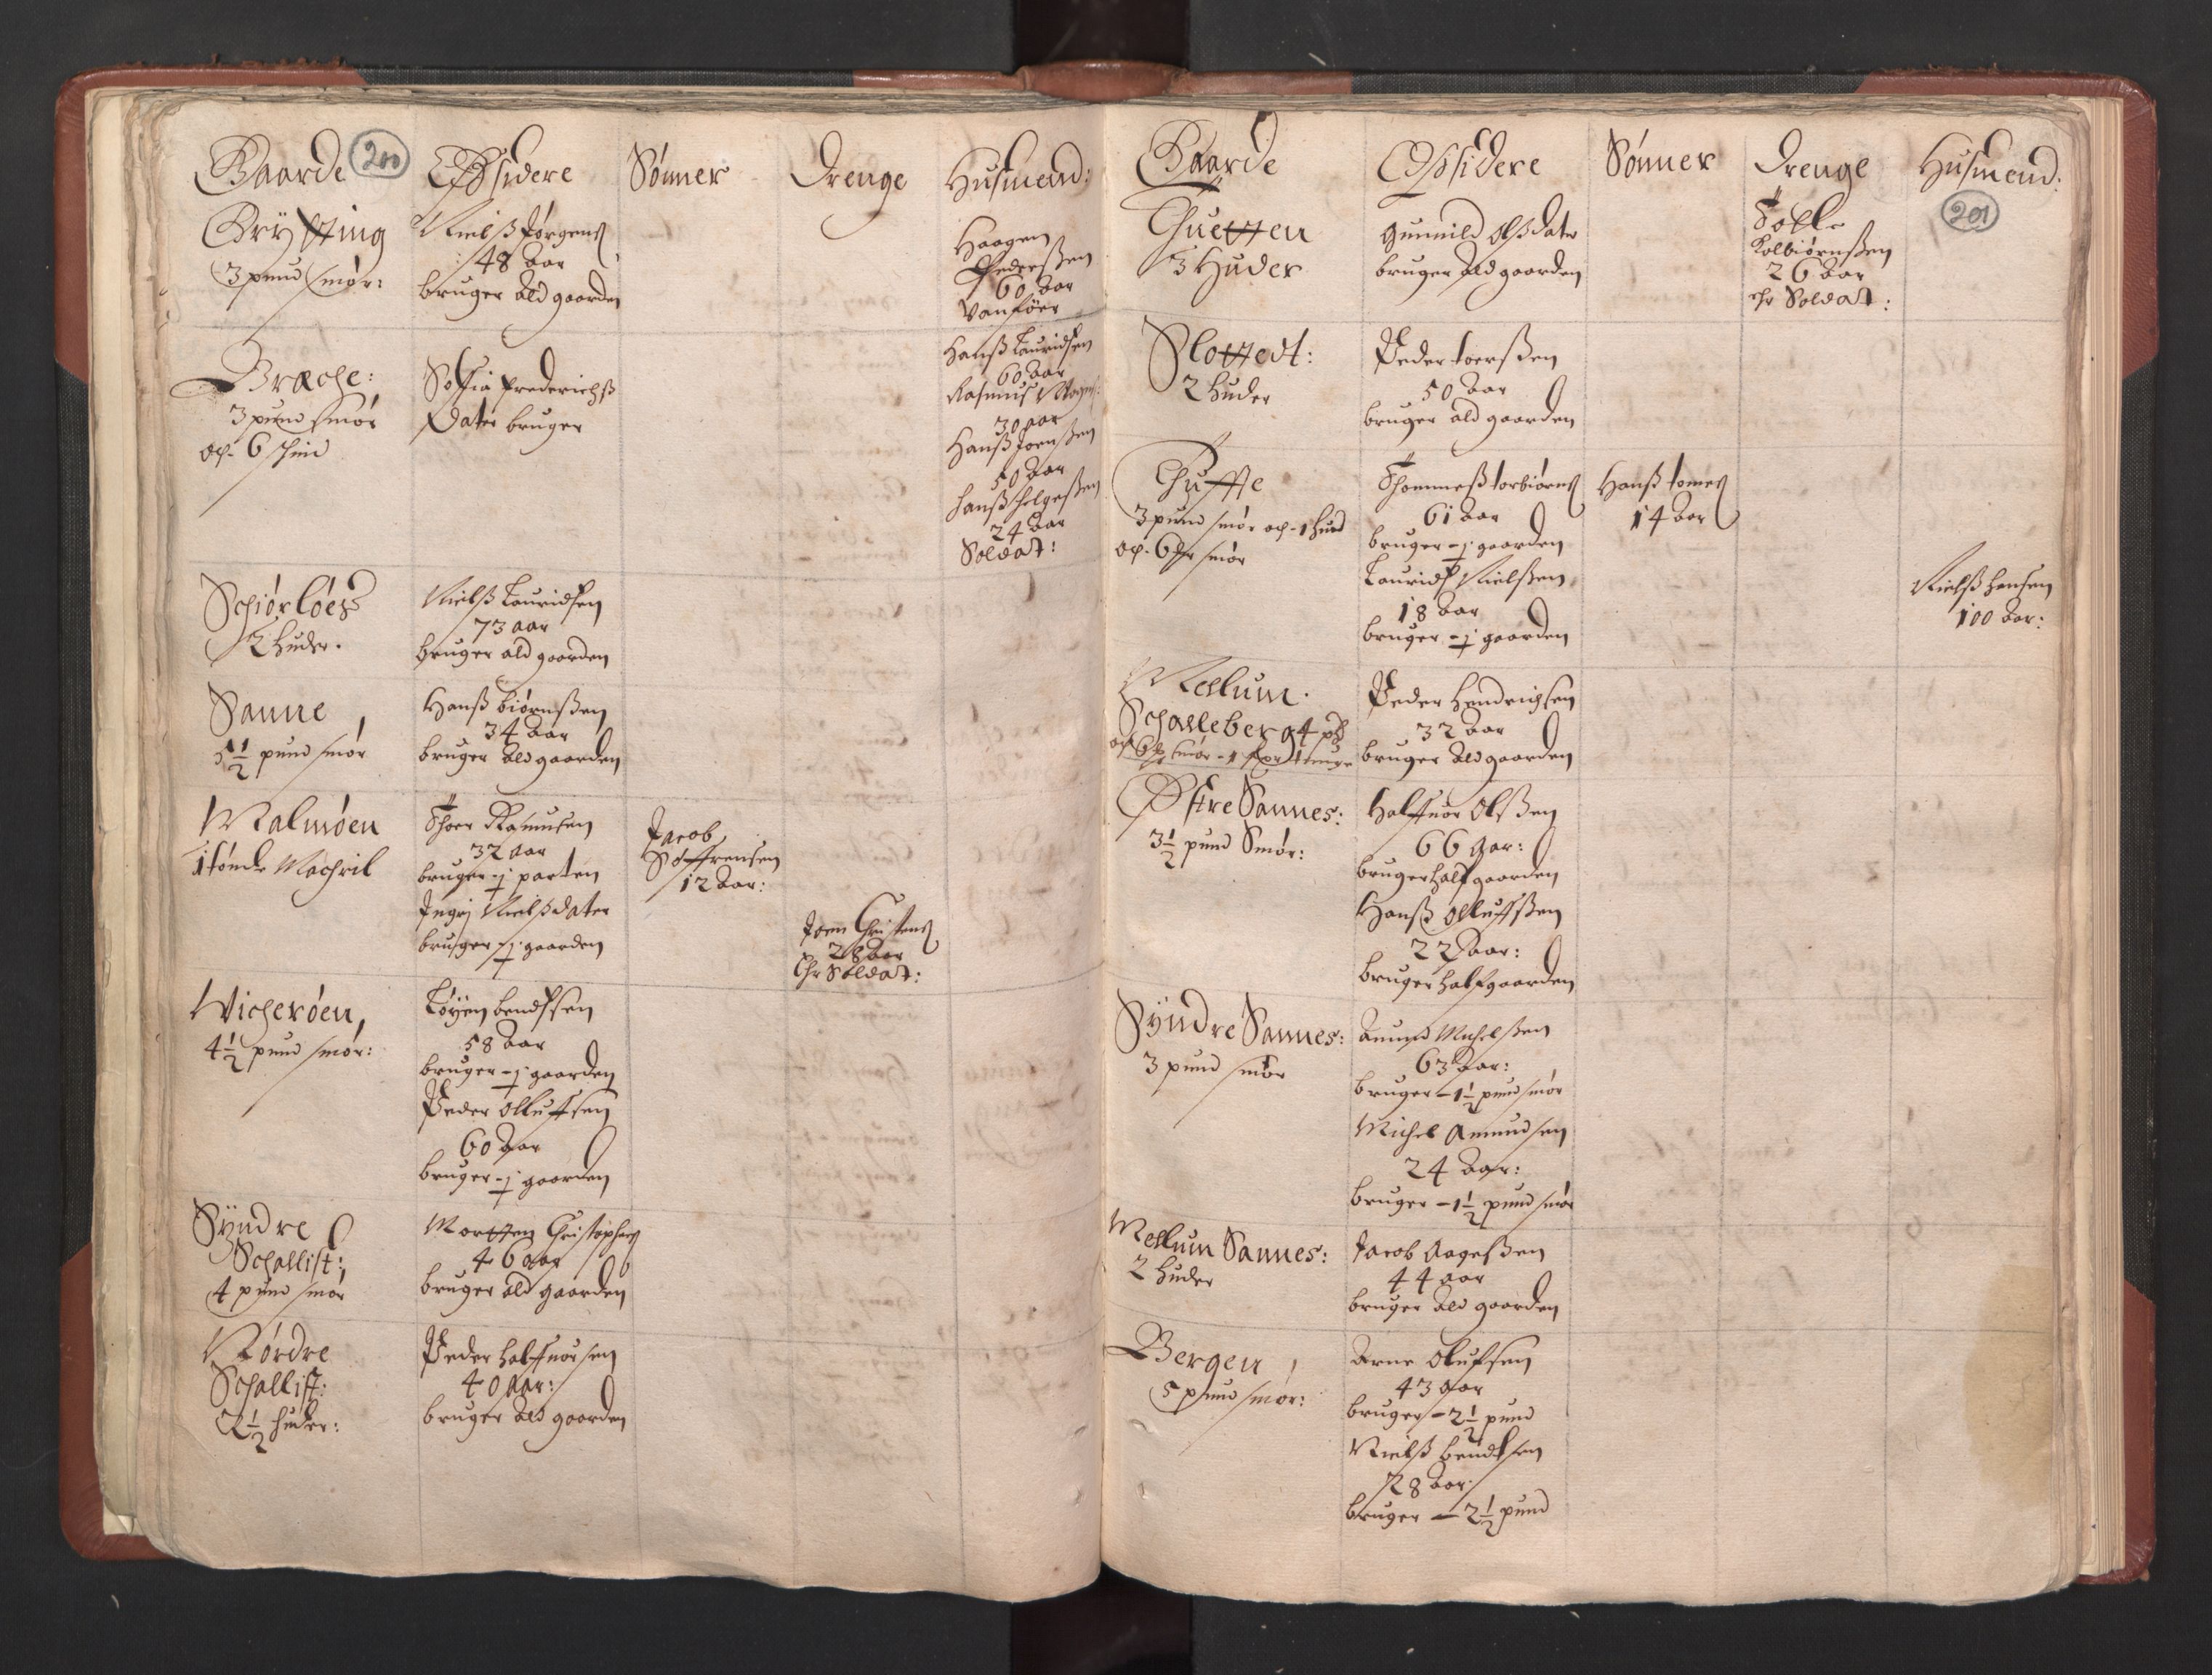 Gaarde 200 Opsidere Sønner Drenge Husmend:
Grytting
3 pund smør:
Nielß Jørgens
48 aar
bruger ald gaarden
Haagen
Pederßen
60 aar
Vanføer
Bræche:
3 pund smør
och 6 schind
Sofia Frederichß
Dater bruger
Hanß Lauridsen
60 aar
Rasmus
30 aar
Hanß Joenßen
50 aar
Hanß Helgeßen
24 aar
Soldat:
Schiørløes
2 huder.
Nielß Lauridsen
73 aar
bruger ald gaarden
Sanne,
5½ pund smør
Hanß biørnßen
34 aar
bruger ald gaarden
Malmøen
1 tønde Machril
Thoer Rasmusen
32 aar
bruger - j parten
Ingrj Nielßdater
bruger - j gaarden
Jacob
Soffrensen
12 aar:
Joen Christens
28 aar
Ehr Soldat:
Wicherøen,
4½ pund smør:
Løyen bendtsen
58 aar
bruger - j gaarden
Peder Olluffsen
60 aar
bruger - j gaarden
Syndre
Schallist:
4 pund smør
Mortten Christophers
46 aar
bruger ald gaarden
Nordre
Schallist:
2½ huder:
Peder halffuorsen
40 aar:
bruger ald gaarden
Gaarde Opsidere Sønner Drenge Husmend:
201
Thuetten
3 Huder
Gunnild Olßdater
bruger ald gaarden
Kolbiørnßen
26 aar
ehr Soldat:
Slottedt:
2 huder
Peder toerßen
50 aar
bruger ald gaarden
Thuffte
3 pund smør och - 1 hud
och - 6 smør
Thommeß torbiørns
61 aar
bruger - j gaarden
Lauridß Nielßen
18 aar
bruger - j gaarden
Hanß tomes
14 aar
Nielß hansen
100 aar:
Mellum.
Schalleberg 4 pd
Peder Hendrichsen
32 aar
bruger ald gaarden
Østre Sannes:
3½ pund Smør:
Halffuor Olßen
66 aar:
bruger half gaarden
Hanß Olluffßen
22 aar:
bruger half gaarden
Syndre Sannes:
3 pund smør
Amund Michelßen
63 aar:
bruger - 1½ pund smør
Michel Amundsen
24 aar:
bruger - 1½ pund smør
Mellum Sannes:
2 huder
Jacob Aageßen
44 aar
bruger ald gaarden
Bergen,
5 pund smør:
Arne Olufsen
43 aar
bruger - 2½ pund
Nielß bendtsen
28 aar:
bruger - 2½ pund